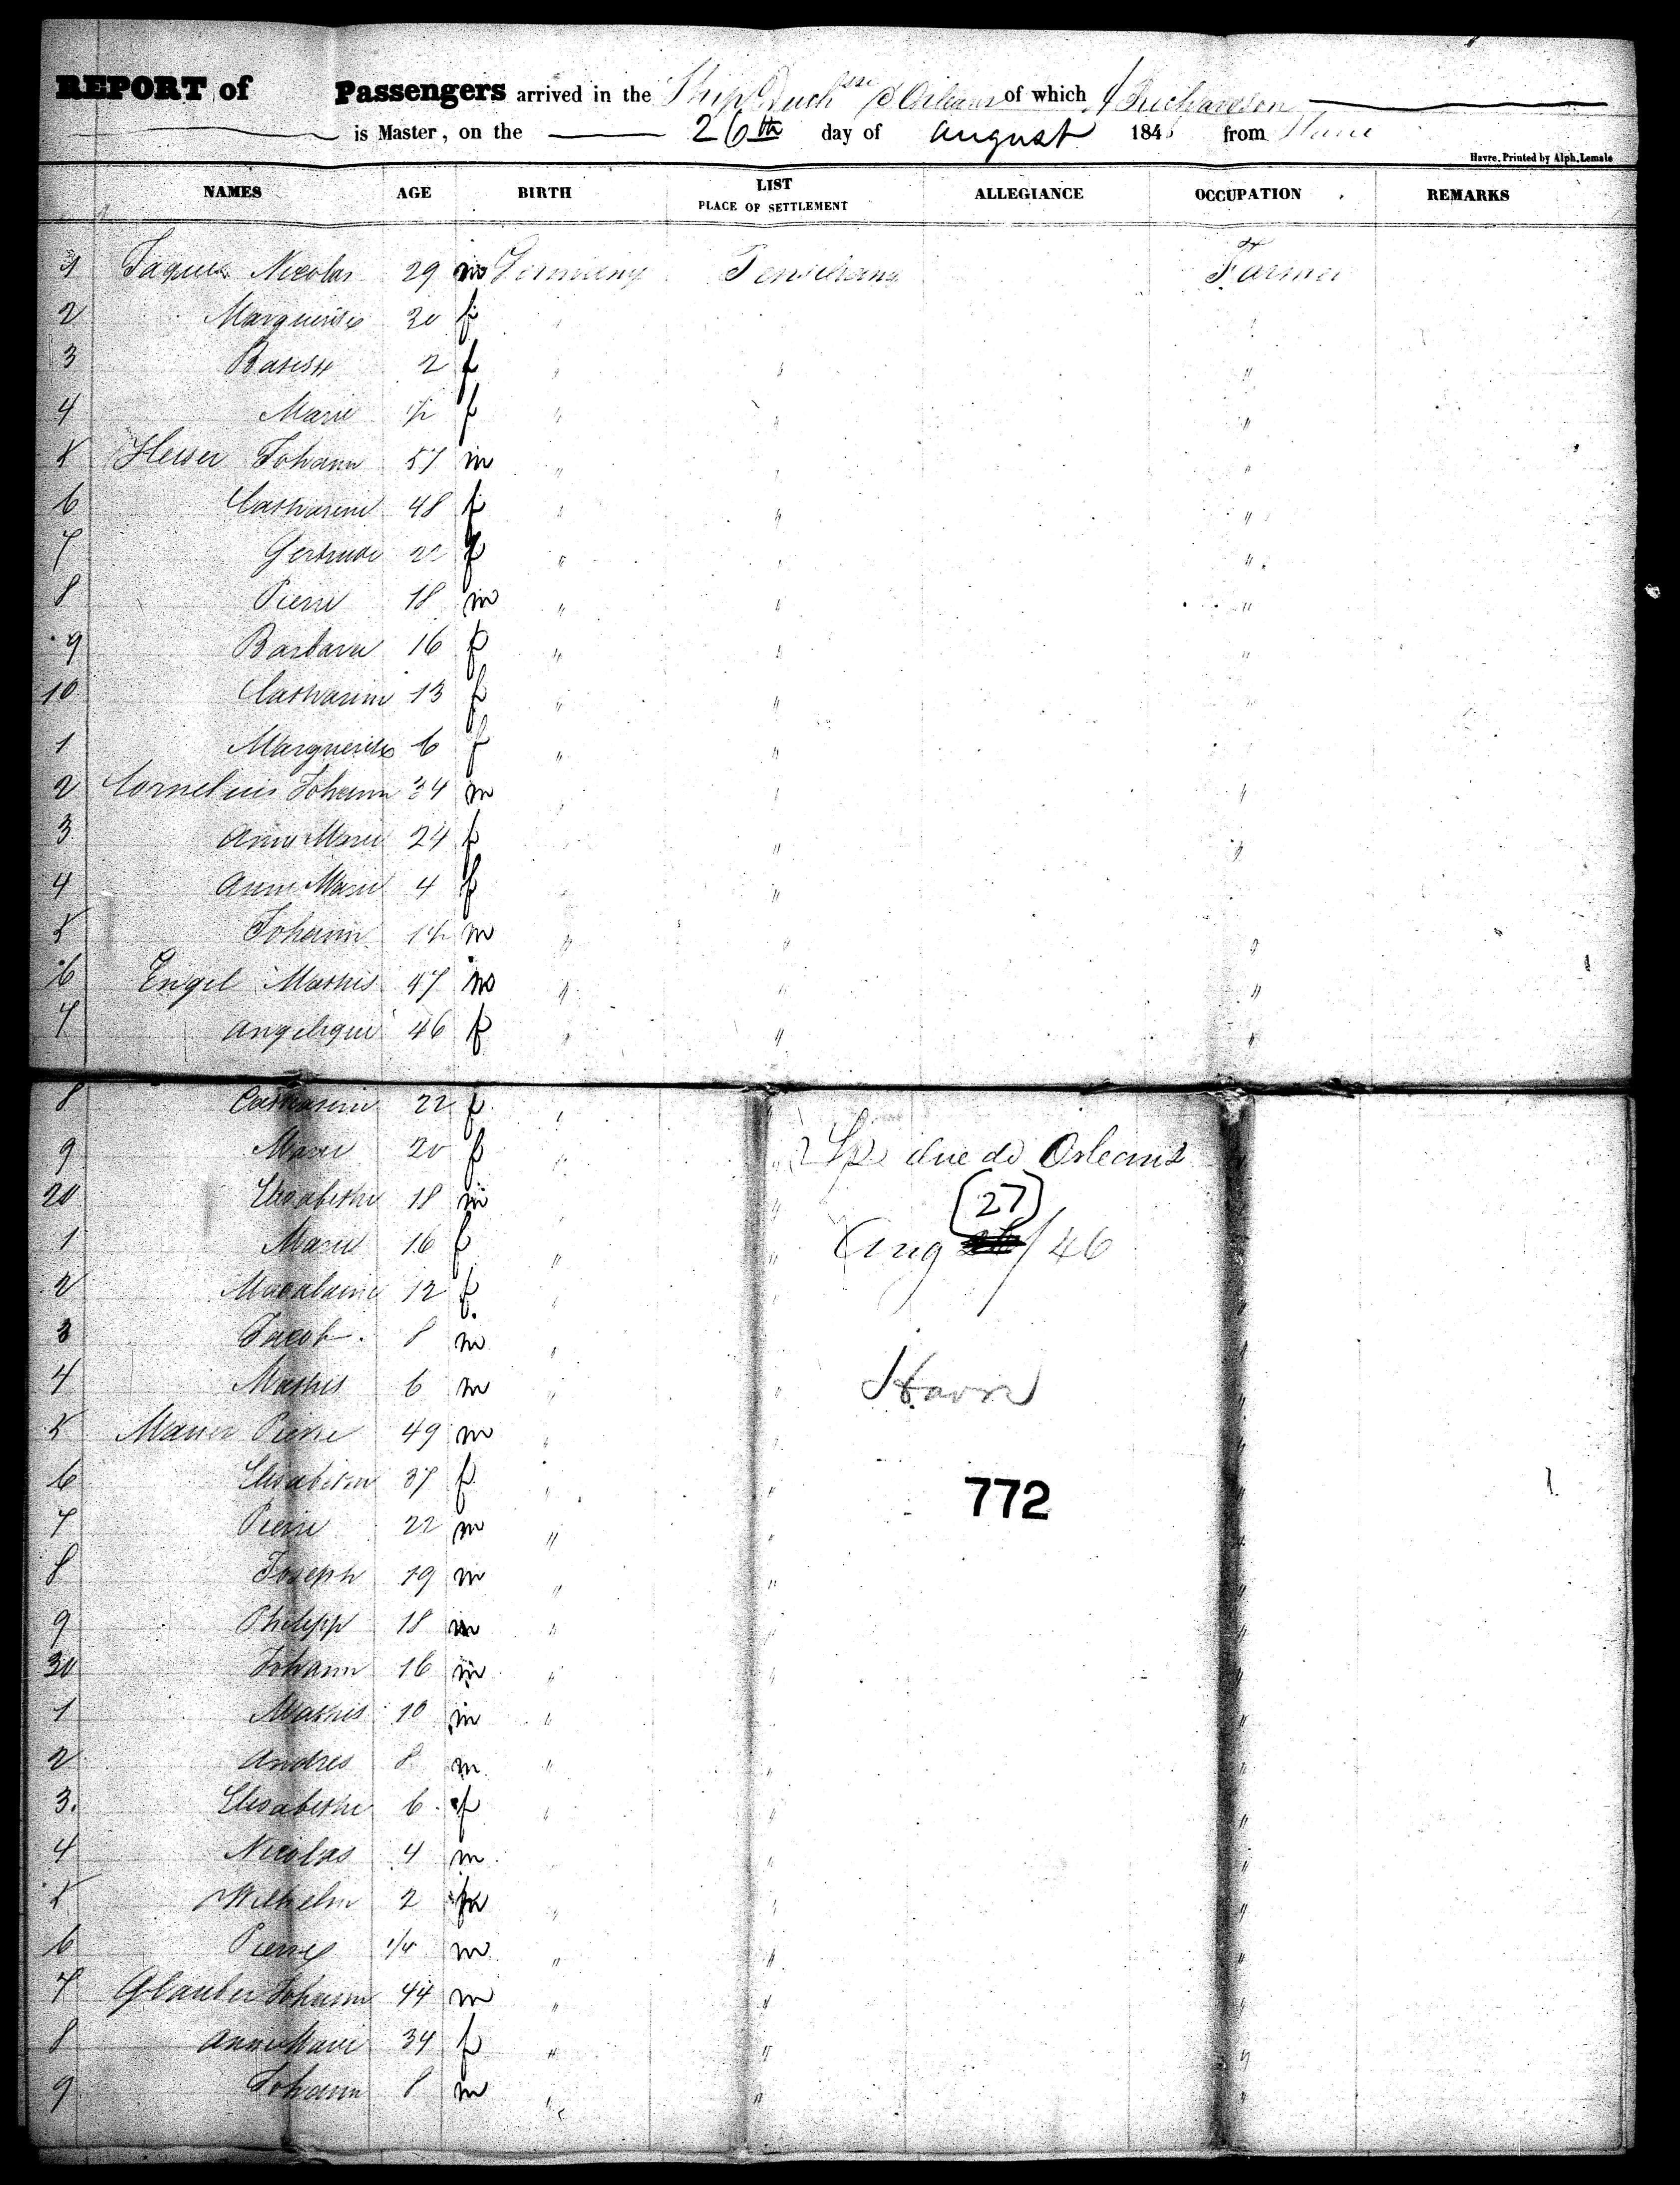 REPORT of Passengers arrived in the Ship Duchsse d'Orleans of which A Richardson
is Master, on the 26th day of august 1846 from Havre
Havre. Printed by Alph. Lemale
NAMES AGE BIRTH LIST PLACE OF SETTLEMENT ALLEGIANCE OCCUPATION REMARKS
1 Jaques Nicolas 29 m Germany Farmer
2 Marguerite 30 f " "
3 2 f " " "
4 Marie 1/2 f " " "
5 Johann 57 m " " "
6 Catharine 48 f " " "
7 Gertrude f " " "
8 Pierre 18 m " " "
9 Barbara 16 f " " "
10 Catharine 13 f " " "
1 Marguerite 6 f " " "
2 Cornelius Johann 34 m " " "
3 Anne Marie 24 f " " "
4 Anne Marie 4 f " " "
5 Johann m " " "
6 Engel Mathis 47 m " " "
7 Angelique 46 f " " "
8 Catharine 22 f " " "
9 Marie 20 f " " "
20 Elisabethe 18 m " "
1 Marie 16 f " " "
2 Magdalaine 12 f " " "
3 Jacob 8 m " " "
4 Mathis 6 m " " "
5 Mauer Pierre 49 m " " "
6 Elisabethe 37 f " " "
7 Pierre 22 m " " "
8 Joseph 19 m " " "
9 Philipp 18 m " " "
30 Johann 16 m " " "
1 Mathis 10 m " " "
2 Andres 8 m " " "
3 Elisabethe 6 f " " "
4 Nicolas 4 m " "
5 Wilhelm 2 m " " "
6 Pierre 1/4 m " " "
7 Glauber Johann 44 m " " "
8 Anne Marie 34 f " " "
9 Johann 8 m " " "
Sp duc de Orleans
27
Aug /46
Havre
772